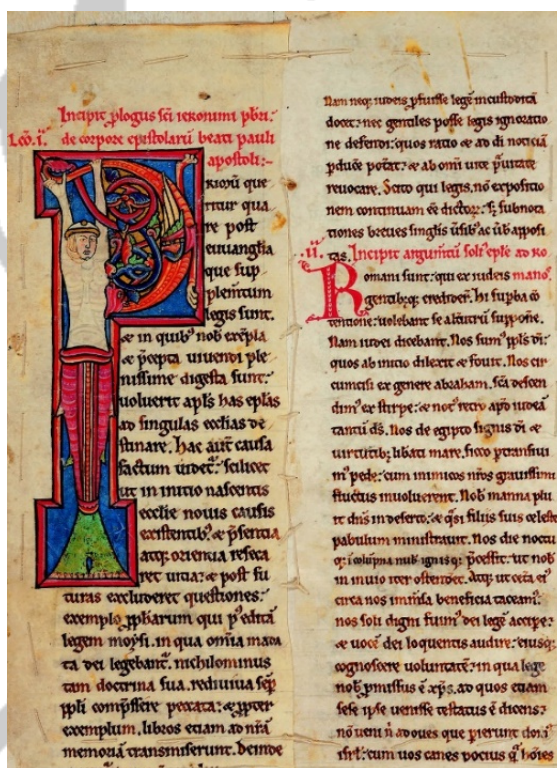 Incipit plogus sci ieronimi pbri.
L.cō. i. de corpore epistolarū beati pauli
apostoli:-
P RIMŪ que
ritur qua
re post
euuanglia
que sup
plemtum
legis sunt.
& in quib' nob exēpla
& p̄cepta uiuendi ple
nissime digesta sunt:
uoluerit apls has eplas
ad singulas ecclias de
stinare. hac aut causa
factum uidet: scilicet
ut in initio nascentis
ecclie nouis causis
existentib; & p̄sentia
atq; orientia reseca
ret uitia: & post fu
turas excluderet questiones:
exemplo ppharum qui p' edita
legem moysi. in qua omīa mada
ta dei legebant. nichilominus
tam doctrina sua. rediuiua sep
ppli compssere peccata: & ppter
exemplum. libros etiam ad nr̄ā
memoriā transmiserunt. Deinde
Nam neq; iudeis pfuisse legē incustoditā
docet: nec gentiles posse legis ignoratio
ne defendi: quos ratio & ad di noticiā
pduce potat: & ab omi uite puitate
reuocare. Scito qui legis. nō expositio
nem continuam eē dictoz: s; subnota
tiones breues singlis usib; ac ūb apposi
.ii. tas. Incipit argumtū solī eple ad Ro
R omani sunt: qui ex iudeis manos.
gentib;q; credider. hi supba cō
tentione: uolebant se alterutrū suppone.
Nam iudei dicebant. Nos sum' ppls di:
quos ab inicio dilexit & fouit. Nos cir
cumcisi ex genere abraham. scā descen
dim' ex stirpe: & not' retro apd iudeā
tantū ds. Nos de egipto signis di &
uirtutib; libati mare. sicco ptransiui
m' pede: cum inimicos nr̄os grauissimi
fluctus inuoluerent. Nob manna plu
it dn̄s in deserto: & q̄si filiis suis celeste
pabulum ministrauit. Nos die noctu
q; i colūpna nub ignisq; p̄cessit: ut nob
in inuio iter ostenderet. Atq; ut cetā ei'
circa nos inmēsa beneficia taceam:
nos soli digni fuim' dei legē accipe:
& uocē dei loquentis audire: eiusq;
cognoscere uoluntatē: in qua lege
nob pmissus ē xp̄s. ad quos etiam
sese ipse uenisse testatus ē dicens:
nō ueni n̄ ad oues que pierunt dom'
isrl: cum uos canes pocius q̄ hoīes